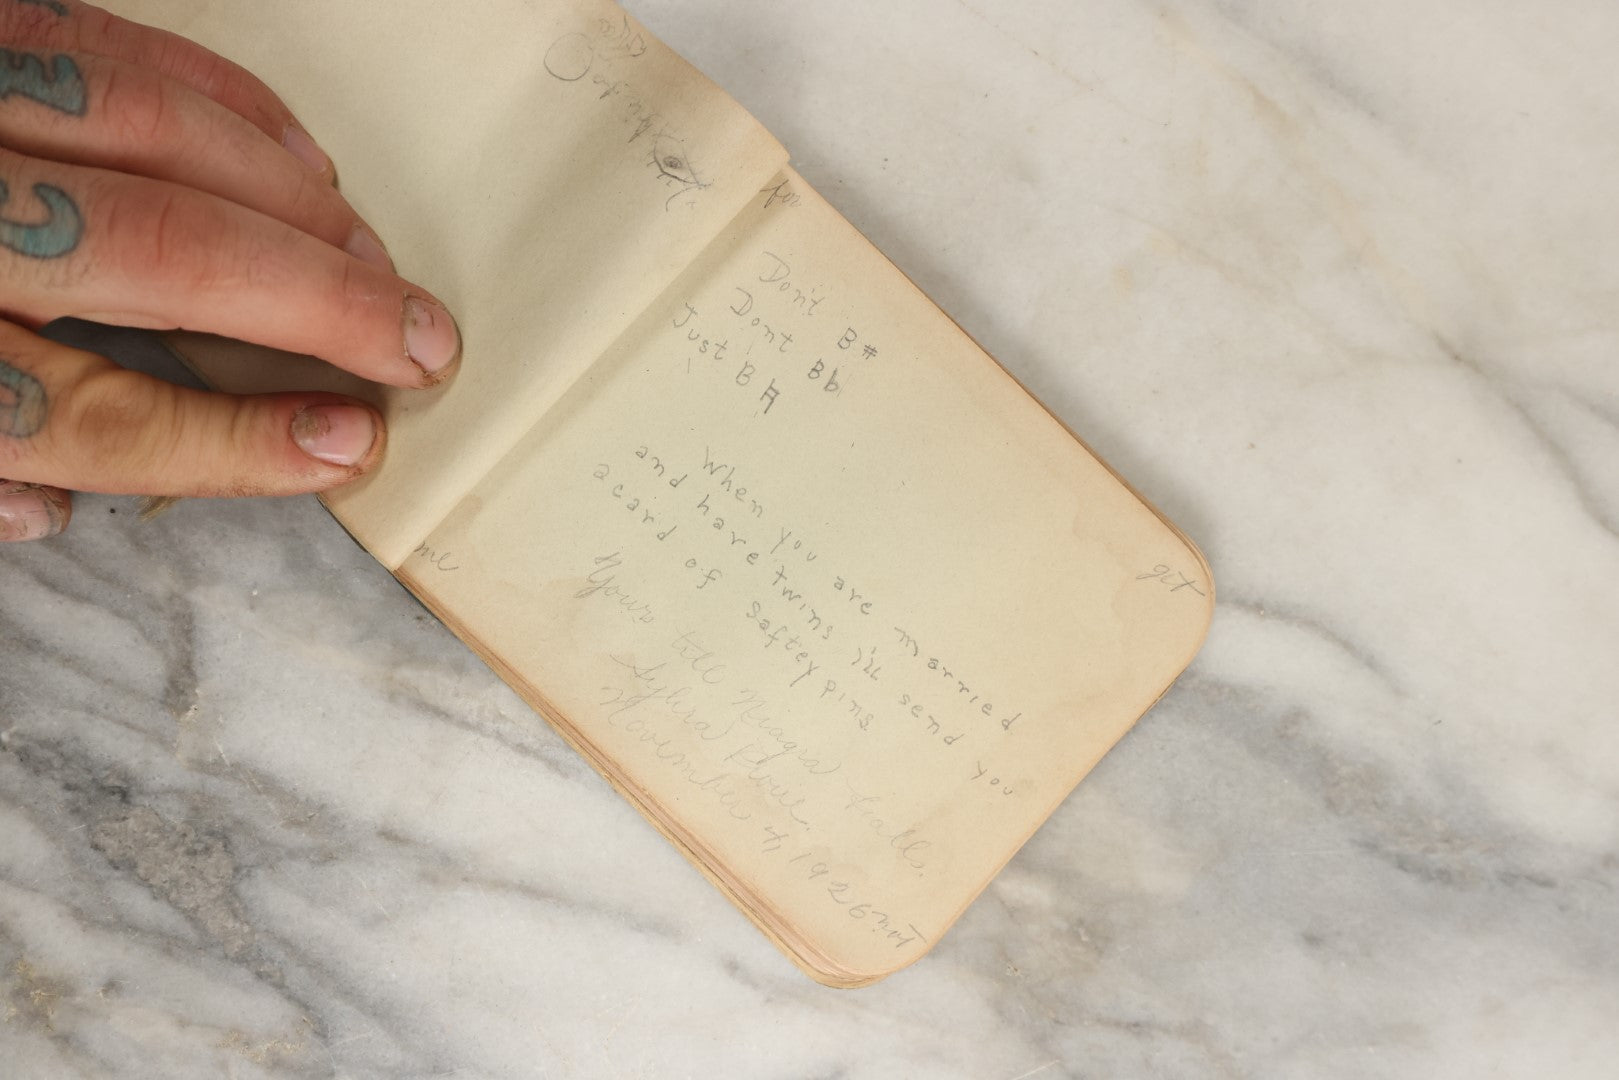 for
get
me
not
Don't B#
Dont Bb
Just B ♮
When you are married
and have twins I'll send you
acard of saftey pins
Yours till Niagra Falls.
Sylvia
November 4, 1926
E
C